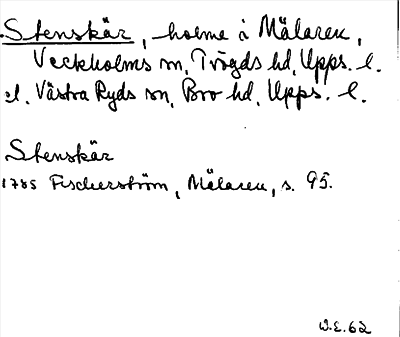 Stenskär, holme i Mälaren,
Veckholms sn, Trögds hd, Upps. l.
el. Västra Ryds sn, Bro hd, Upps. l.
Stenskär
1785 Fischerström, Mälaren, s. 95.
W.E. 62